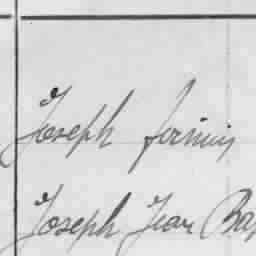 Joseph Firmin
Joseph Jean Bap